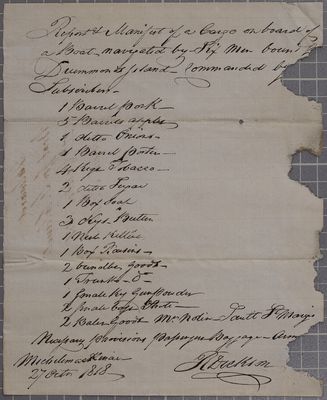 Report & Manifest of a Cargo on board of
a Boat navigated by Six Men bound
Drummonds Island - Commanded by
Subscriber -
1 Barrel Pork
5 Barrels apples
1 ditto Onions -
1 Barrel Porter -
4 Kegs Tobacco -
2 ditto Sugar
1 Box Soap
3 Kegs Butter
1 Nest Kettles
1 Box Raisins -
2 bundles Goods -
1 Trunk - Do -
1 small Keg Gunpowder
2 small bags Shot -
2 Bales Goods Mr Nolin Sault St Marys
Necessary Provisions Passengers Baggage -
Michilimackinac
27 Octr 1818